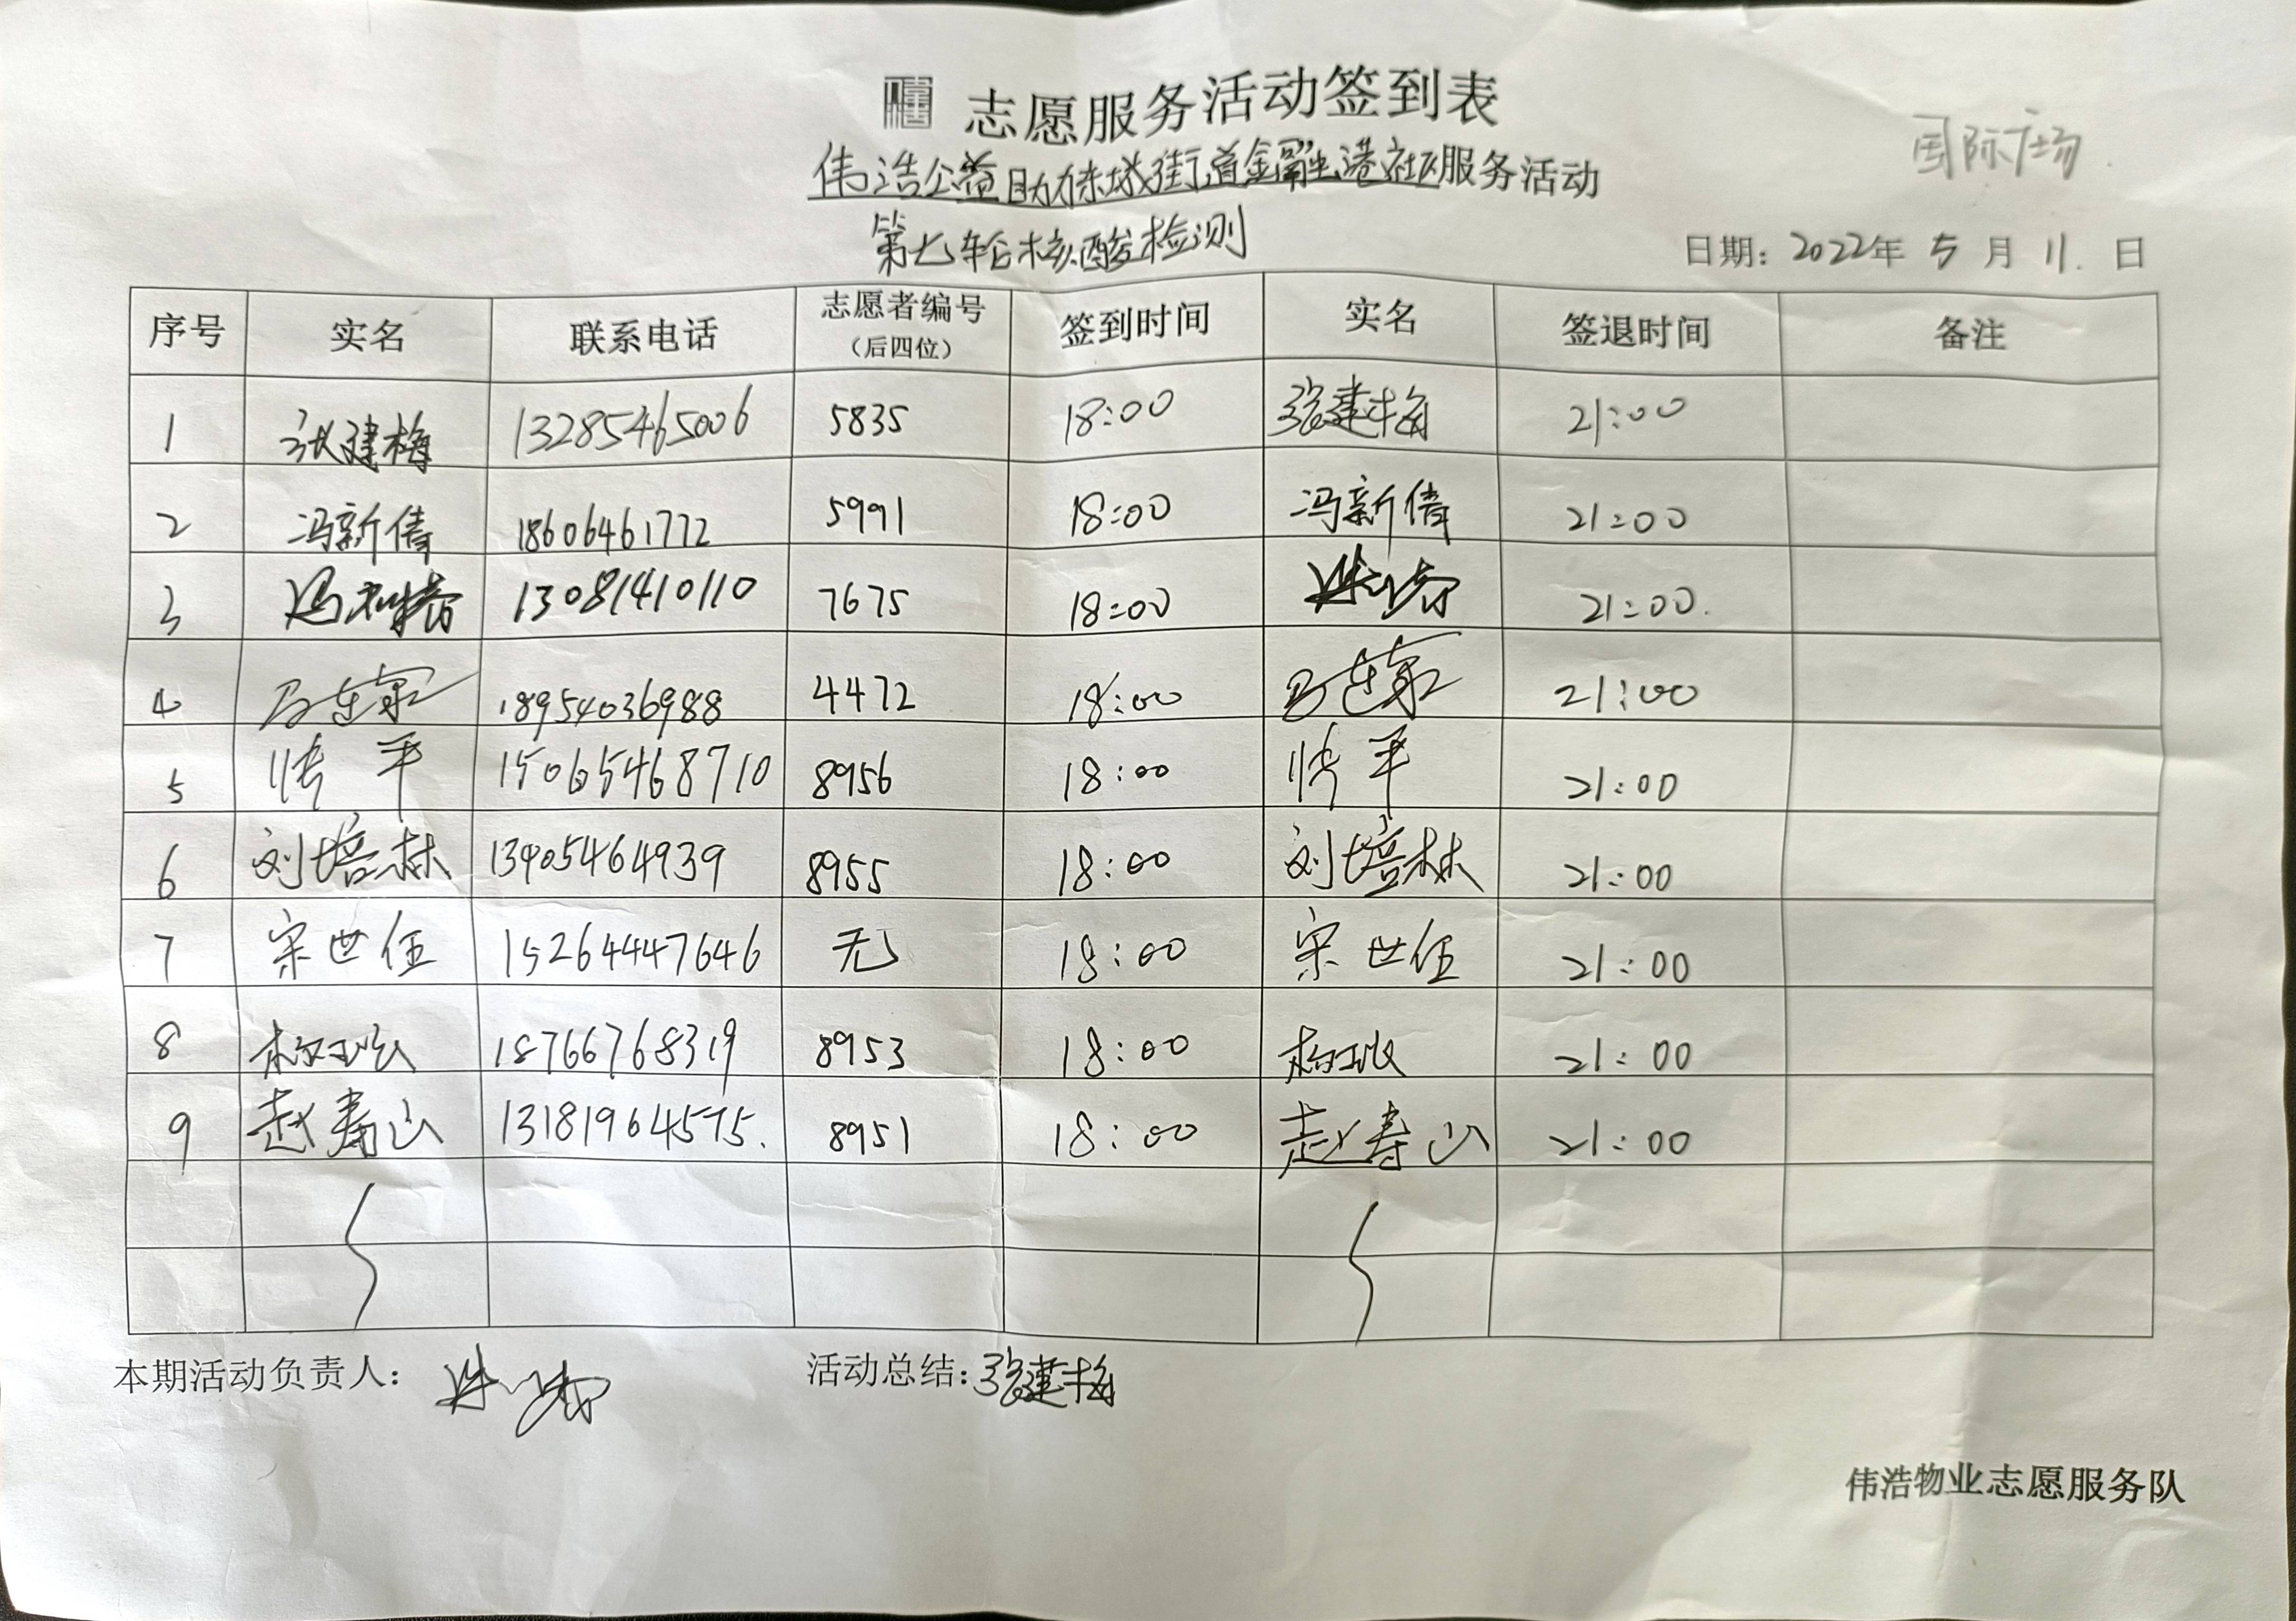 志愿服务活动签到表
国际广场
伟浩公益助力东城街道金融港社区服务活动
第七轮核酸检测
日期：2022年 5 月 11 日
序号 实名 联系电话 志愿者编号（后四位） 签到时间 实名 签退时间 备注
1 张建梅 13285465006 5835 18:00 张建梅 21:00
2 冯新倩 18606461772 5991 18:00 冯新倩 21:00
3 13081410110 7675 18:00 21:00
4 18954036988 4472 18:00 21:00
5 平 15065468710 8956 18:00 平 21:00
6 刘培林 13905464939 8955 18:00 刘培林 21:00
7 宋世伍 15264447646 无 18:00 宋世伍 21:00
8 18766768319 8953 18:00 21:00
9 赵寿山 13181964575. 8951 18:00 赵寿山 21:00
本期活动负责人： 活动总结：张建梅
伟浩物业志愿服务队